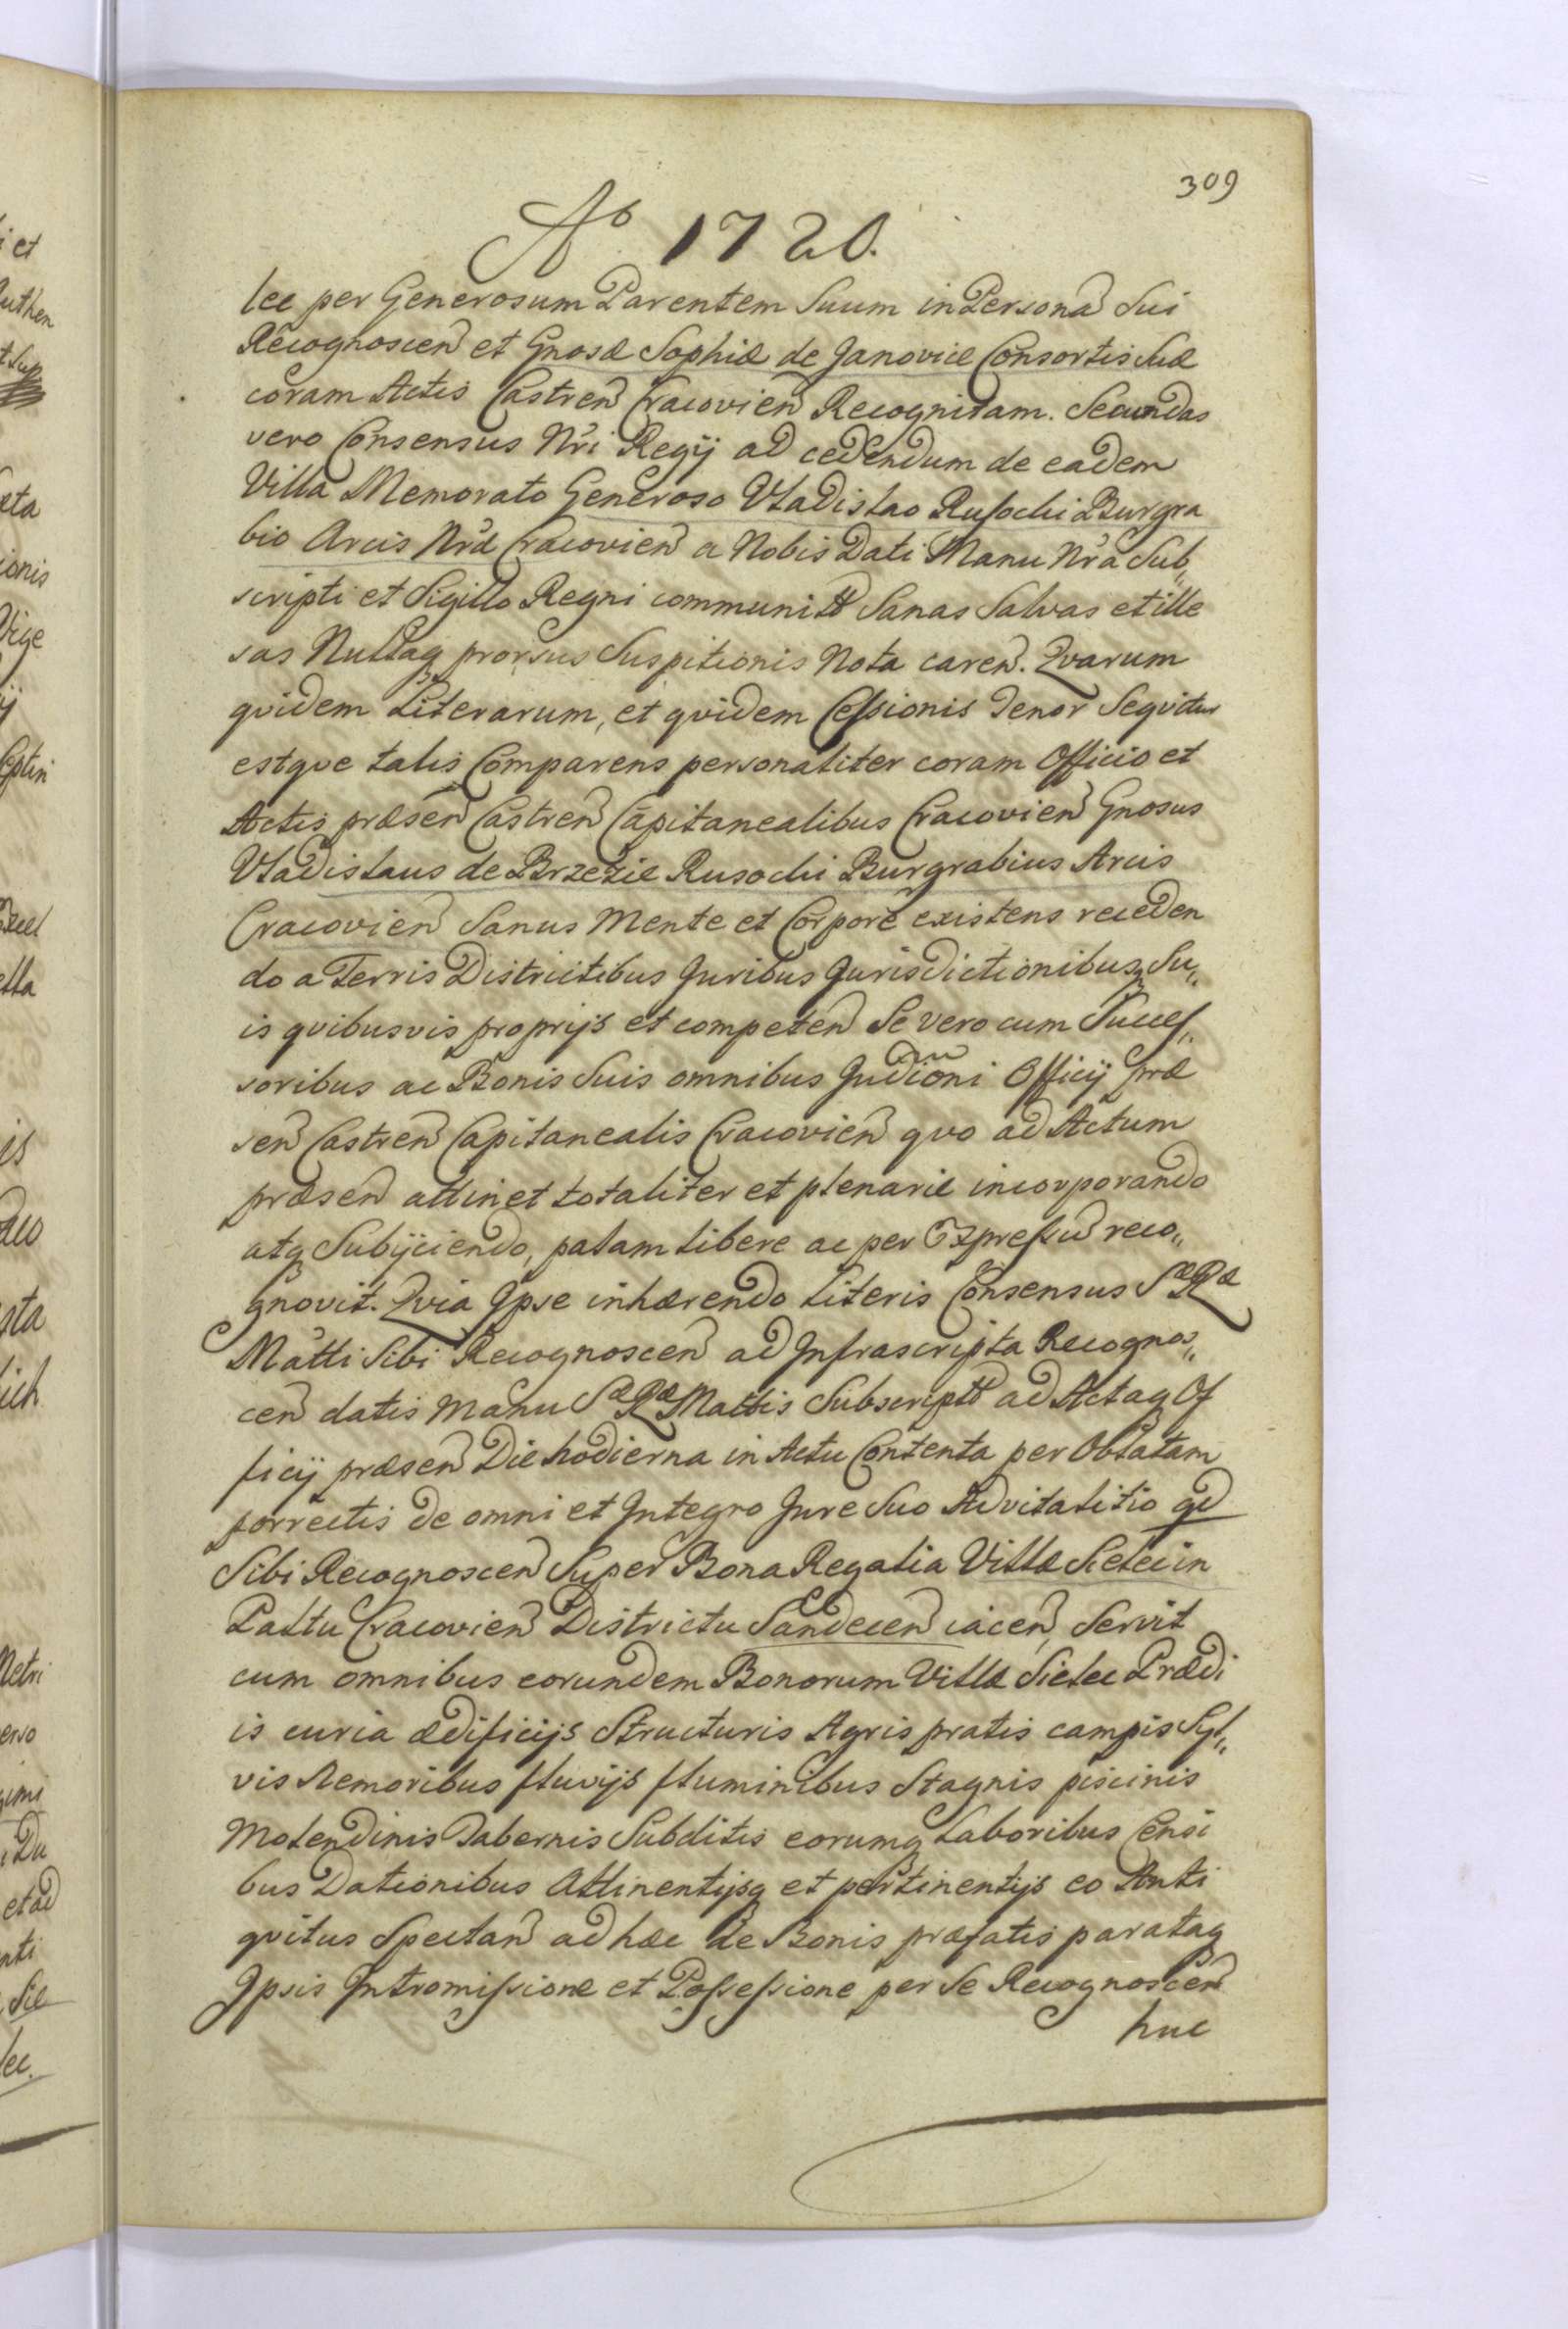 309
Aº 1720.
lec per Generosum Parentem Suum in Persona Sui
Recognoscen et Gnosæ Sophiæ de Janovice Consortis Suæ
coram Actis Castren Cracovien Recognitam. Secundas
vero Consensus Nri Regij ad cedendum de eadem
Villa Memorato Generoso Vladislao Rusocki Burgra
bio Arcis Nræ Cracovien a Nobis Dati Manu Nra Sub„
scripti et Sigillo Regni communitt Sanas Salvas et ille
sas Nullaq prorsus Suspitionis Nota caren. Qvarum
qvidem Literarum, et qvidem Cessionis Tenor Seqvitur
estqve talis Comparens personaliter coram Officio et
Actis præsen Castren Capitanealibus Cracovien Gnosus
Vladislaus de Brzezie Rusocki Burgrabius Arcis
Cracovien Sanus Mente et Corpore existens receden
do a Terris Districtibus Juribus Jurisdictionibusq Su„
is qvibusvis proprijs et competen Se vero cum Succes„
soribus ac Bonis Suis omnibus Judioni Officij præ
sen Castren Capitanealis Cracovien qvo ad Actum
præsen attinet totaliter et plenarie incorporando
atq Subijciendo, palam libere ac per Expressu reco„
gnovit. Qvia Ipse inhærendo Literis Consensus Sæ Ræ
Matti Sibi Recognoscen ad Infrascripta Recognos„
cen datis Manu Sæ Ræ Mattis Subscriptt ad Actaq Of
ficij præsen Die hodierna in Actu Contenta per Oblatam
porrectis de omni et Integro Jure Suo Advitalitio qd
Sibi Recognoscen Super Bona Regalia Villæ Sielec in
Pallu Cracovien Districtu Sandecen iacen, Servit
cum omnibus eorundem Bonorum Villæ Sielec Prædi
is curia ædificijs Structuris Agris pratis campis Syl„
vis Nemoribus fluvijs fluminibus Stagnis piscinis
Molendinis Tabernis Subditis eorumq Laboribus Censi
bus Dationibus Attinentijsq et pertinentijs eo Anti
qvitus Spectan ad hæc de Bonis præfatis parataq
Ipsis Intromissione et Possessione per Se Recognoscen
huc